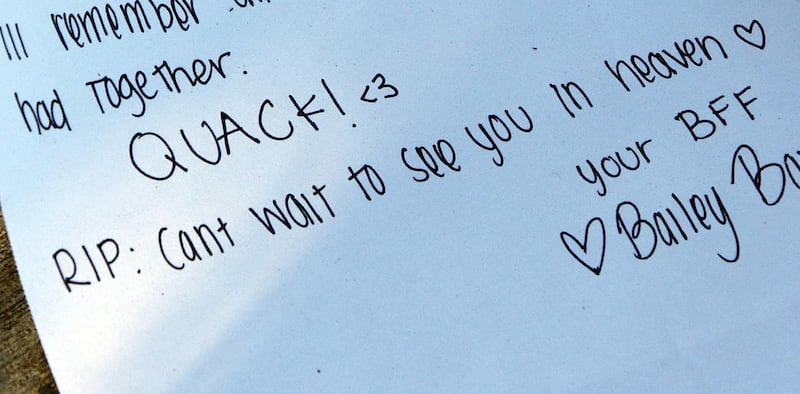 Ill remember
had Together.
QUACK! <3
RIP: Cant wait to see you in heaven ♡
your BFF
♡ Bailey